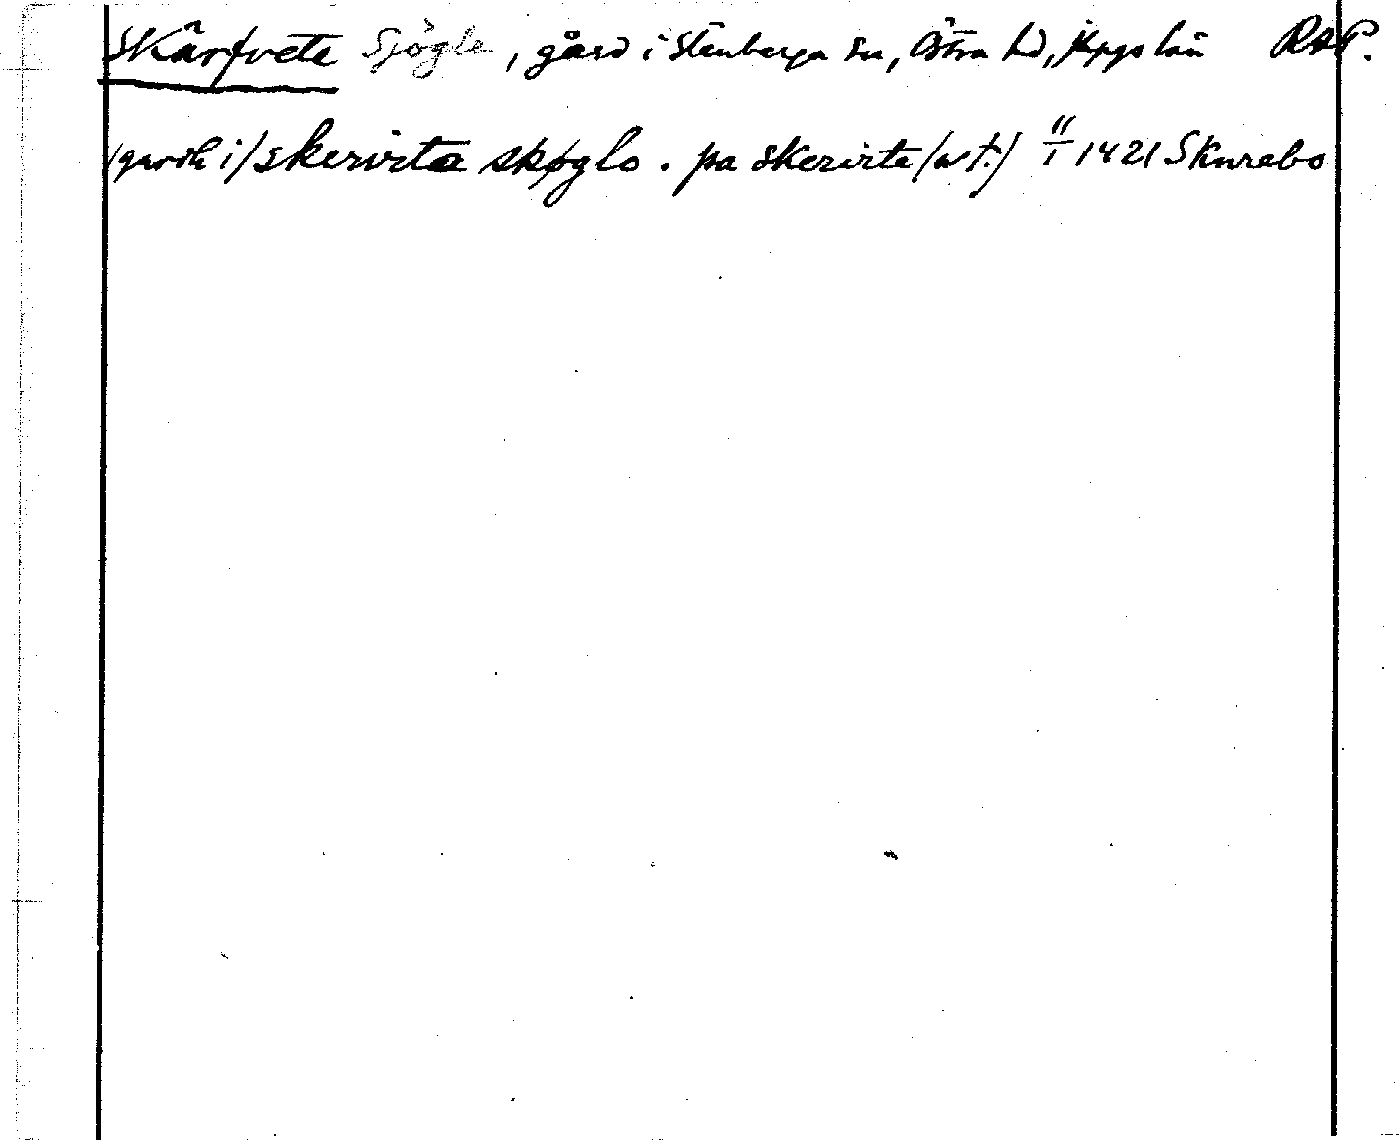 Skärfvete Sjögle, gård i Stenberga sn, Östra hd, Jkpgs län RAP.
/gardh i/ skervita skøglo . pa skerirte /ut:/ 11/1 1421 Skurebo